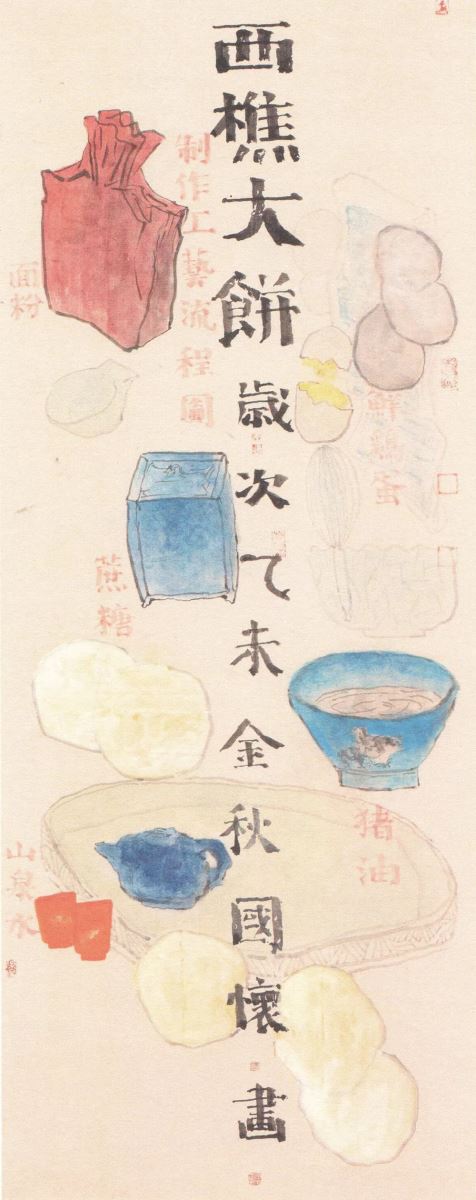 西樵大餅歲次乙未金秋國懷畫
制作工藝流程圖
面粉
鮮鷄蛋
蔗糖
猪油
山泉水